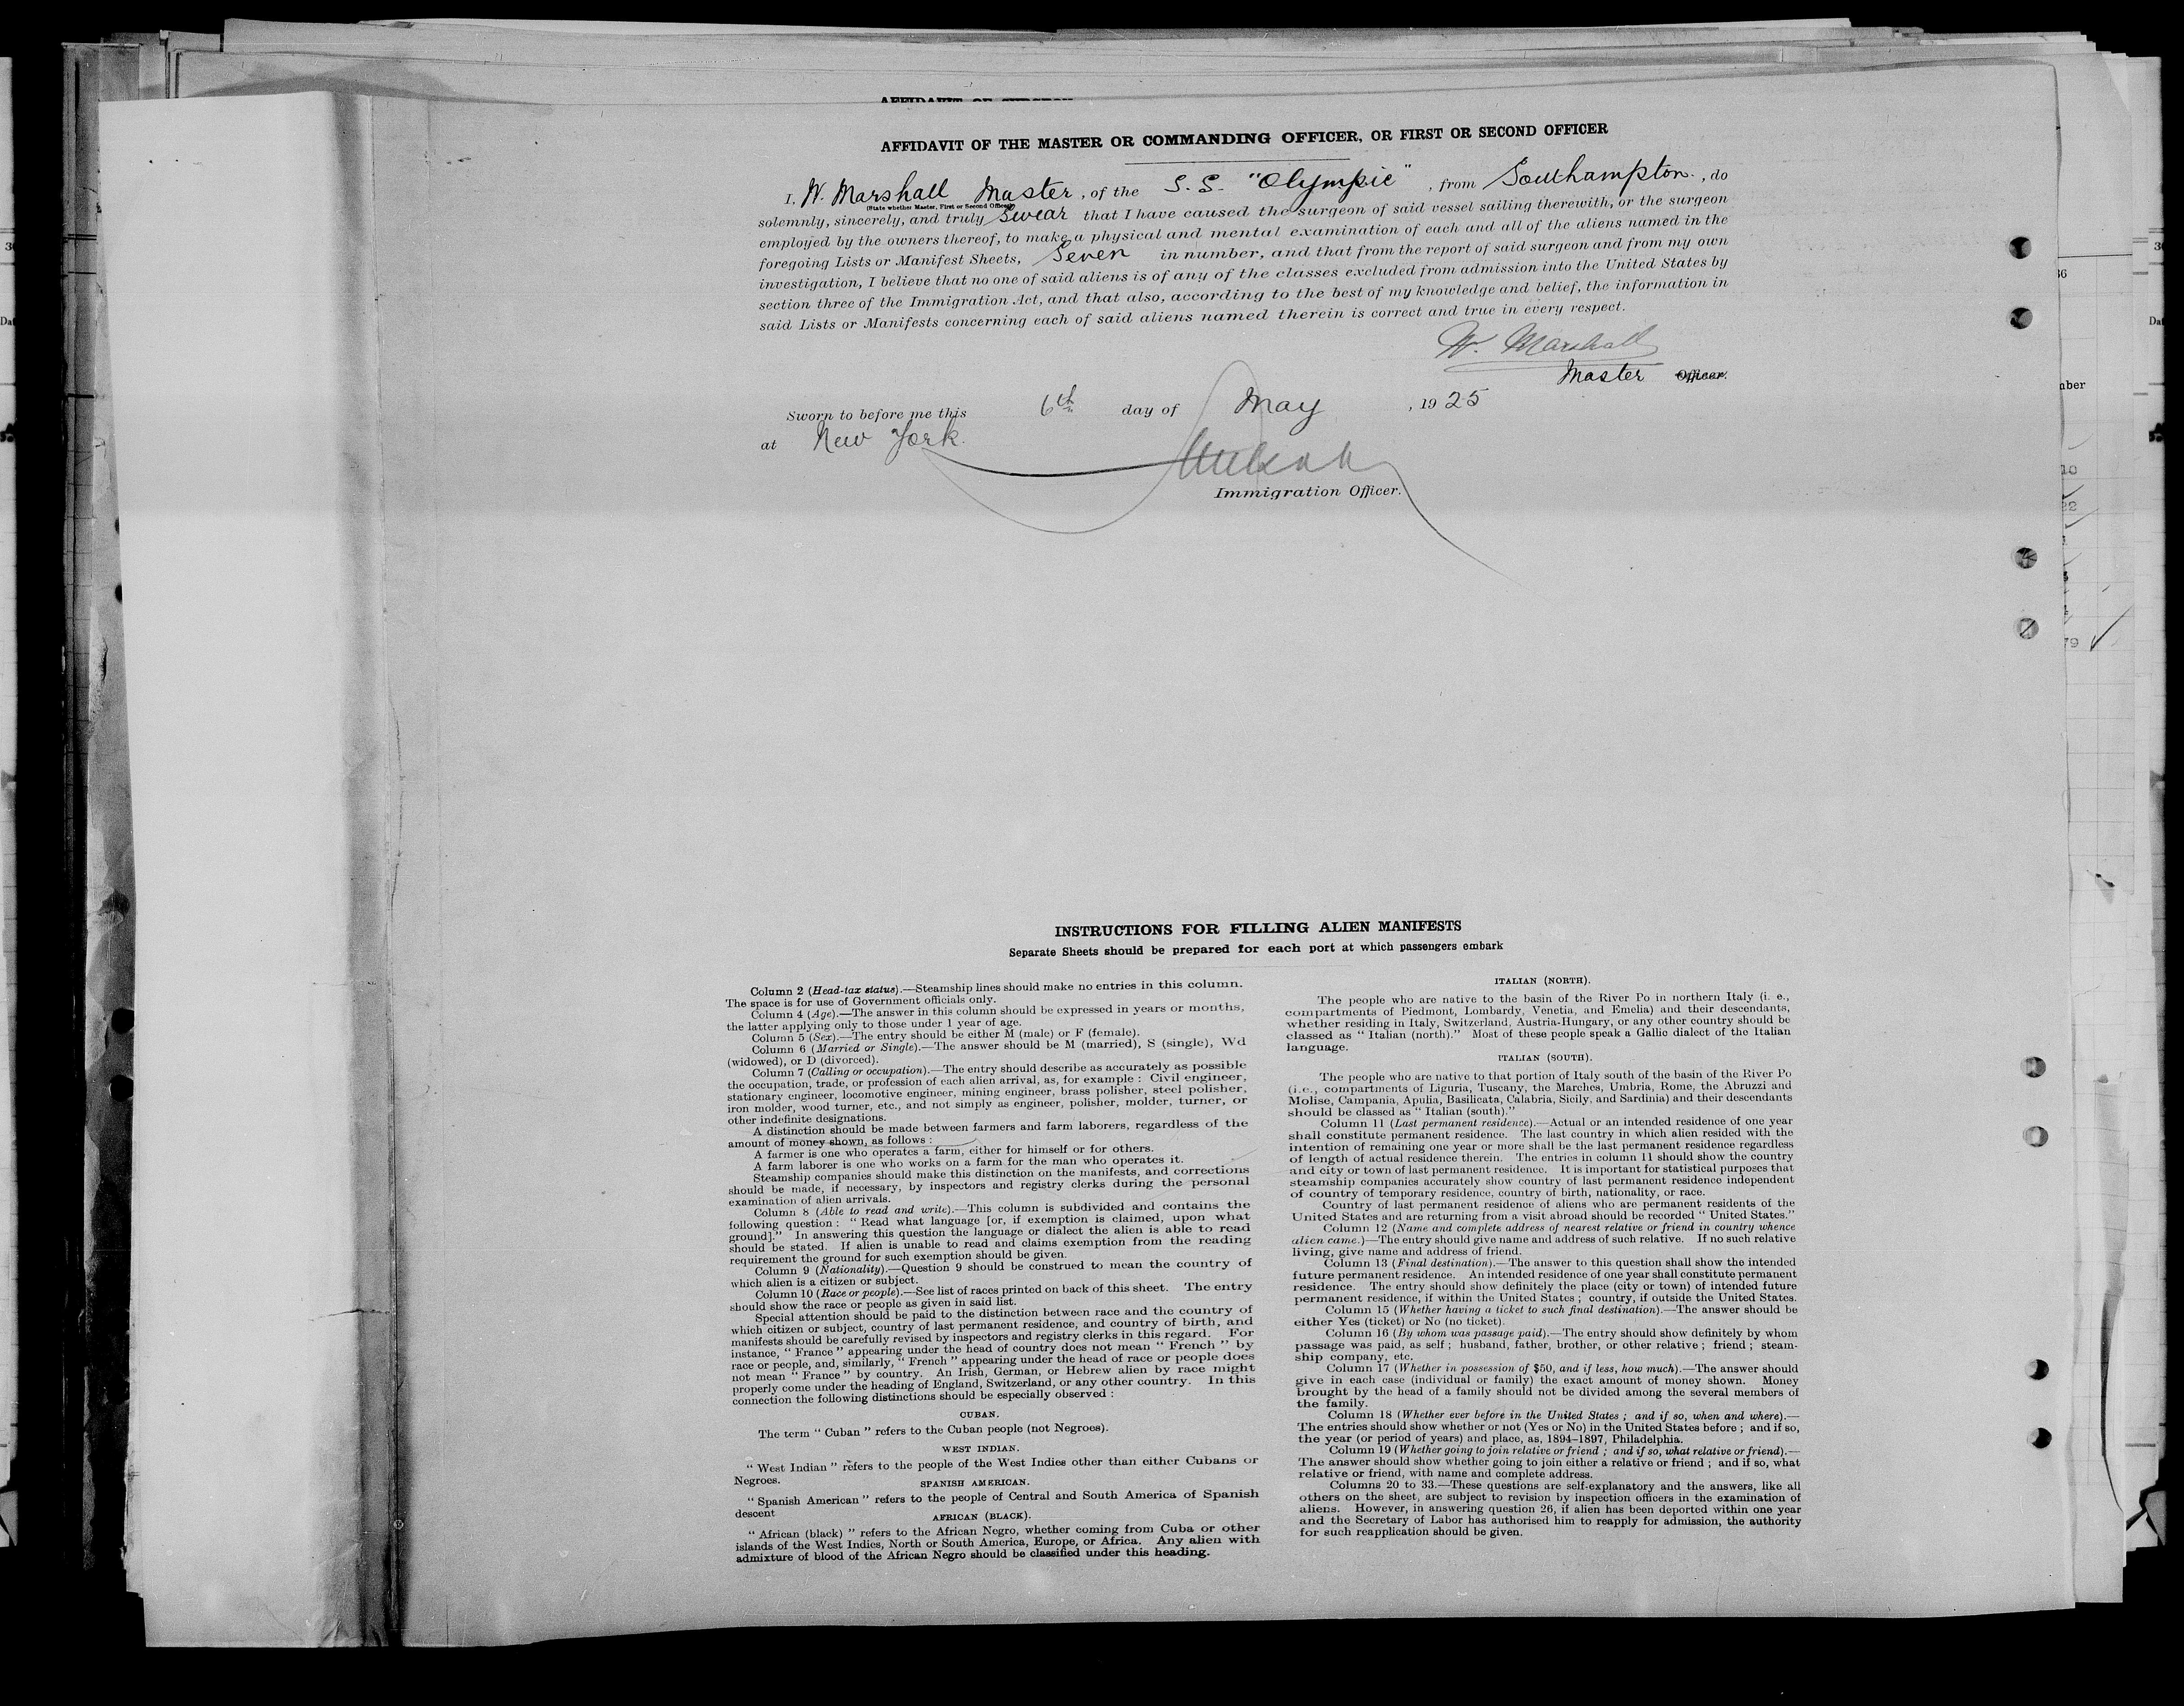 AFFIDAVIT OF SURGEON
AFFIDAVIT OF THE MASTER OR COMMANDING OFFICER, OR FIRST OR SECOND OFFICER
I, W. Marshall Master, of the S.S. "Olympic", from Southampton., do
(State whether Master, First or Second Officer)
solemnly, sincerely, and truly Swear that I have caused the surgeon of said vessel sailing therewith, or the surgeon
employed by the owners thereof, to make a physical and mental examination of each and all of the aliens named in the
foregoing Lists or Manifest Sheets, Seven in number, and that from the report of said surgeon and from my own
investigation, I believe that no one of said aliens is of any of the classes excluded from admission into the United States by
section three of the Immigration Act, and that also, according to the best of my knowledge and belief, the information in
said Lists or Manifests concerning each of said aliens named therein is correct and true in every respect.
W. Marshall
Master Officer.
Sworn to before me this 6th day of May, 1925
at New York.
Immigration Officer.
INSTRUCTIONS FOR FILLING ALIEN MANIFESTS
Separate Sheets should be prepared for each port at which passengers embark
Column 2 (Head-tax status).—Steamship lines should make no entries in this column.
The space is for use of Government officials only.
Column 4 (Age).—The answer in this column should be expressed in years or months,
the latter applying only to those under 1 year of age.
Column 5 (Sex).—The entry should be either M (male) or F (female).
Column 6 (Married or Single).—The answer should be M (married), S (single), Wd
(widowed), or D (divorced).
Column 7 (Calling or occupation).—The entry should describe as accurately as possible
the occupation, trade, or profession of each alien arrival, as, for example : Civil engineer,
stationary engineer, locomotive engineer, mining engineer, brass polisher, steel polisher,
iron molder, wood turner, etc., and not simply as engineer, polisher, molder, turner, or
other indefinite designations.
A distinction should be made between farmers and farm laborers, regardless of the
amount of money shown, as follows :
A farmer is one who operates a farm, either for himself or for others.
A farm laborer is one who works on a farm for the man who operates it.
Steamship companies should make this distinction on the manifests, and corrections
should be made, if necessary, by inspectors and registry clerks during the personal
examination of alien arrivals.
Column 8 (Able to read and write).—This column is subdivided and contains the
following question : " Read what language [or, if exemption is claimed, upon what
ground]." In answering this question the language or dialect the alien is able to read
should be stated. If alien is unable to read and claims exemption from the reading
requirement the ground for such exemption should be given.
Column 9 (Nationality).—Question 9 should be construed to mean the country of
which alien is a citizen or subject.
Column 10 (Race or people).—See list of races printed on back of this sheet. The entry
should show the race or people as given in said list.
Special attention should be paid to the distinction between race and the country of
which citizen or subject, country of last permanent residence, and country of birth, and
manifests should be carefully revised by inspectors and registry clerks in this regard. For
instance, " France " appearing under the head of country does not mean " French " by
race or people, and, similarly, " French " appearing under the head of race or people does
not mean " France " by country. An Irish, German, or Hebrew alien by race might
properly come under the heading of England, Switzerland, or any other country. In this
connection the following distinctions should be especially observed :
CUBAN.
The term " Cuban " refers to the Cuban people (not Negroes).
WEST INDIAN.
" West Indian " refers to the people of the West Indies other than either Cubans or
Negroes.
SPANISH AMERICAN.
" Spanish American " refers to the people of Central and South America of Spanish
descent
AFRICAN (BLACK).
" African (black) " refers to the African Negro, whether coming from Cuba or other
islands of the West Indies, North or South America, Europe, or Africa. Any alien with
admixture of blood of the African Negro should be classified under this heading.
ITALIAN (NORTH).
The people who are native to the basin of the River Po in northern Italy (i. e.,
compartments of Piedmont, Lombardy, Venetia, and Emelia) and their descendants,
whether residing in Italy, Switzerland, Austria-Hungary, or any other country should be
classed as " Italian (north)." Most of these people speak a Gallic dialect of the Italian
language.
ITALIAN (SOUTH).
The people who are native to that portion of Italy south of the basin of the River Po
(i.e., compartments of Liguria, Tuscany, the Marches, Umbria, Rome, the Abruzzi and
Molise, Campania, Apulia, Basilicata, Calabria, Sicily, and Sardinia) and their descendants
should be classed as " Italian (south)."
Column 11 (Last permanent residence).—Actual or an intended residence of one year
shall constitute permanent residence. The last country in which alien resided with the
intention of remaining one year or more shall be the last permanent residence regardless
of length of actual residence therein. The entries in column 11 should show the country
and city or town of last permanent residence. It is important for statistical purposes that
steamship companies accurately show country of last permanent residence independent
of country of temporary residence, country of birth, nationality, or race.
Country of last permanent residence of aliens who are permanent residents of the
United States and are returning from a visit abroad should be recorded " United States."
Column 12 (Name and complete address of nearest relative or friend in country whence
alien came.)—The entry should give name and address of such relative. If no such relative
living, give name and address of friend.
Column 13 (Final destination).—The answer to this question shall show the intended
future permanent residence. An intended residence of one year shall constitute permanent
residence. The entry should show definitely the place (city or town) of intended future
permanent residence, if within the United States ; country, if outside the United States.
Column 15 (Whether having a ticket to such final destination).—The answer should be
either Yes (ticket) or No (no ticket).
Column 16 (By whom was passage paid).—The entry should show definitely by whom
passage was paid, as self ; husband, father, brother, or other relative ; friend ; steam-
ship company, etc.
Column 17 (Whether in possession of $50, and if less, how much).—The answer should
give in each case (individual or family) the exact amount of money shown. Money
brought by the head of a family should not be divided among the several members of
the family.
Column 18 (Whether ever before in the United States ; and if so, when and where).—
The entries should show whether or not (Yes or No) in the United States before ; and if so,
the year (or period of years) and place, as, 1894–1897, Philadelphia.
Column 19 (Whether going to join relative or friend ; and if so, what relative or friend).—
The answer should show whether going to join either a relative or friend ; and if so, what
relative or friend, with name and complete address.
Columns 20 to 33.—These questions are self-explanatory and the answers, like all
others on the sheet, are subject to revision by inspection officers in the examination of
aliens. However, in answering question 26, if alien has been deported within one year
and the Secretary of Labor has authorised him to reapply for admission, the authority
for such reapplication should be given.